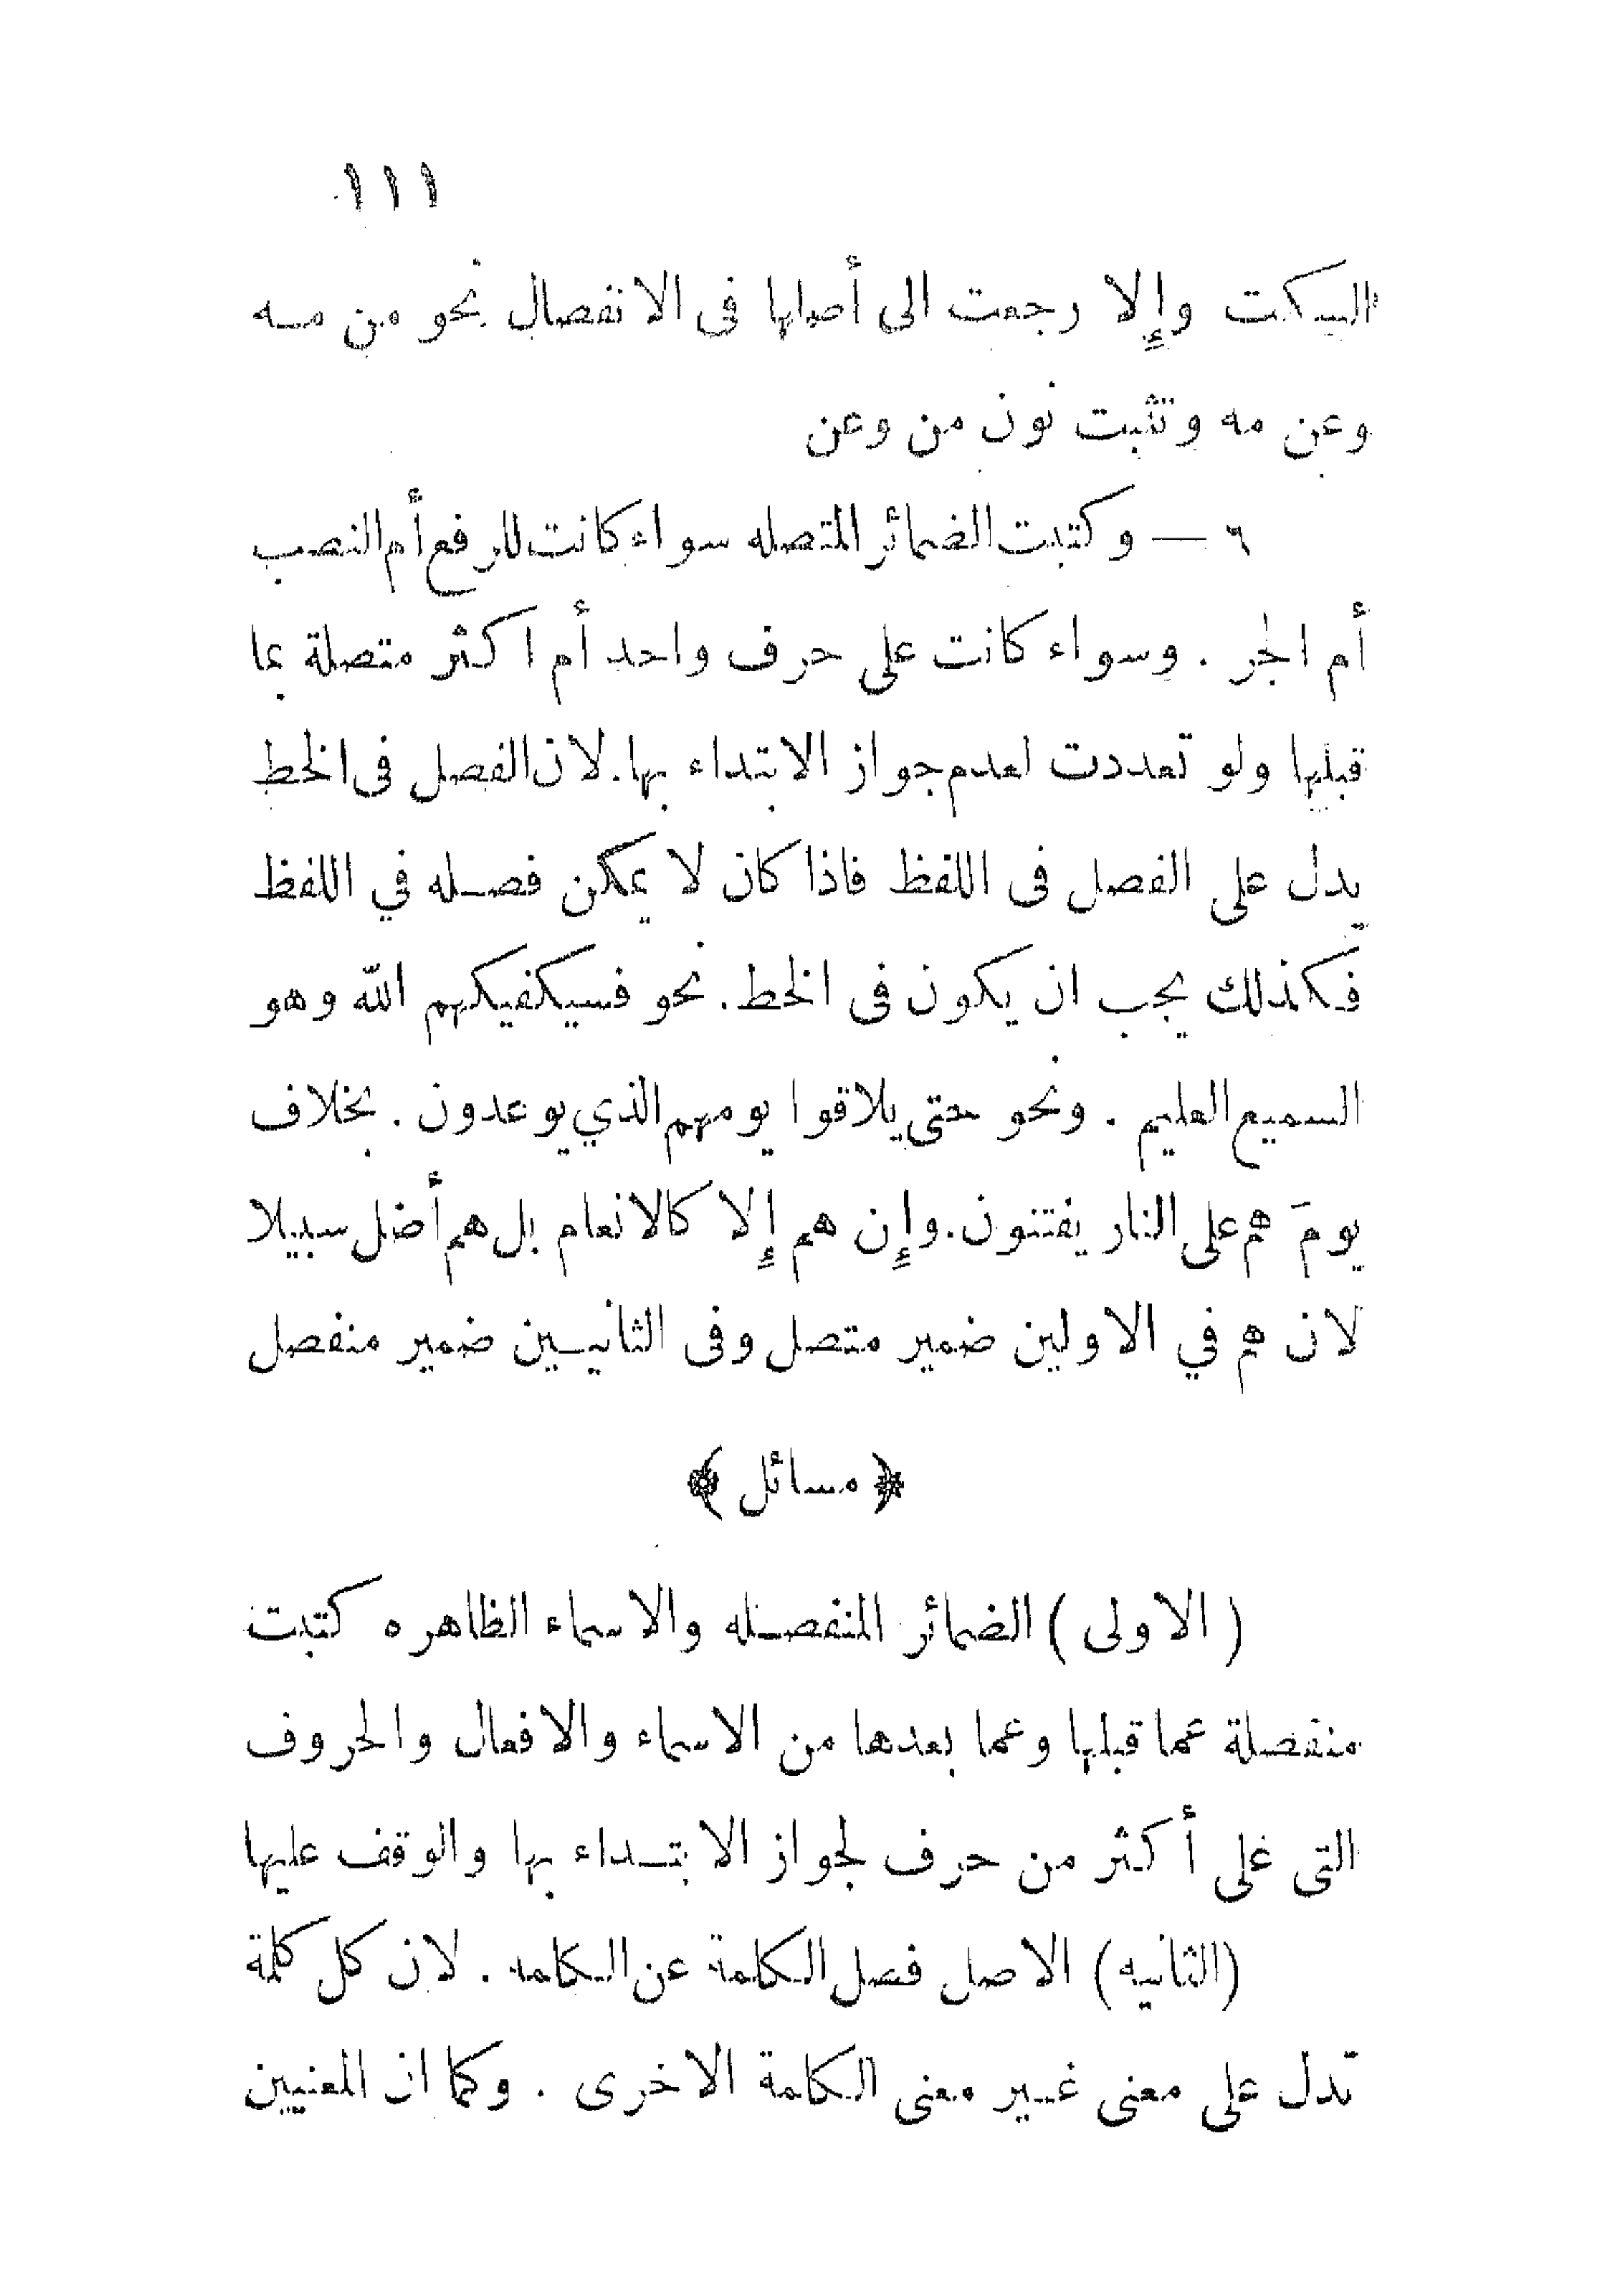 ١١١
السكت وإلا رجعت الى أصلها فى الانفصال نحو من مه
وعن مه وتثبت نون من وعن
٦ — وكتبت الضمائر المتصله سواء كانت للرفع أم النصب
أم الجر . وسواء كانت على حرف واحد أم اكثر متصلة بما
قبلها ولو تعددت لعدم جواز الابتداء بها. لان الفصل فى الخط
يدل على الفصل فى اللفظ فاذا كان لا يمكن فصله في اللفظ
فكذلك يجب ان يكون فى الخط . نحو فسيكفيكهم الله وهو
السميع العليم . ونحو حتى يلاقوا يومهم الذي يوعدون . بخلاف
يومَ هم على النار يفتنون. وإن هم إلا كالانعام بل هم أضل سبيلا
لان هم في الاولين ضمير متصل وفى الثانيين ضمير منفصل
﴿ مسائل ﴾
( الاولى ) الضمائر المنفصله والاسماء الظاهره كتبت
منفصلة عما قبلها وعما بعدها من الاسماء والافعال والحروف
التى على أكثر من حرف لجواز الابتداء بها والوقف عليها
(الثانيه) الاصل فصل الكلمة عن الكلمه . لان كل كلمة
تدل على معنى غير معنى الكلمة الاخرى . وكما ان المعنيين